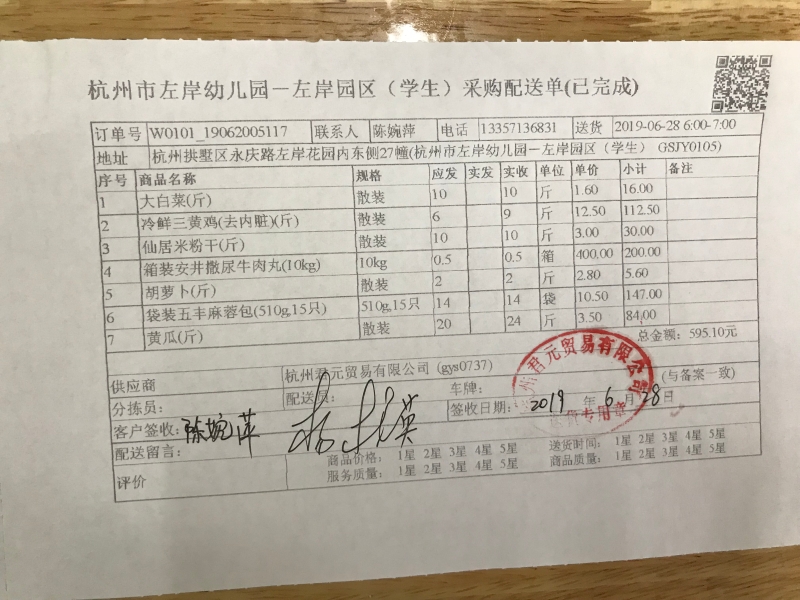 杭州市左岸幼儿园－左岸园区（学生）采购配送单(已完成)
订单号 W0101_19062005117 联系人 陈婉萍 电话 13357136831 送货 2019-06-28 6:00-7:00
地址 杭州拱墅区永庆路左岸花园内东侧27幢(杭州市左岸幼儿园－左岸园区（学生） GSJY0105)
序号 商品名称 规格 应发 实发 实收 单位 单价 小计 备注
1 大白菜(斤) 散装 10 10 斤 1.60 16.00
2 冷鲜三黄鸡(去内脏)(斤) 散装 6 9 斤 12.50 112.50
3 仙居米粉干(斤) 散装 10 10 斤 3.00 30.00
4 箱装安井撒尿牛肉丸(10kg) 10kg 0.5 0.5 箱 400.00 200.00
5 胡萝卜(斤) 散装 2 2 斤 2.80 5.60
6 袋装五丰麻蓉包(510g,15只) 510g,15只 14 14 袋 10.50 147.00
7 黄瓜(斤) 散装 20 24 斤 3.50 84.00
总金额：595.10元
供应商 杭州君元贸易有限公司 (gys0737) (与备案一致)
分拣员： 配送员： 车牌：
客户签收： 陈婉萍 签收日期： 2019 年 6 月 28 日
杭州君元贸易有限公司
专用章
配送留言：
评价
商品价格： 1星 2星 3星 4星 5星 送货时间： 1星 2星 3星 4星 5星
服务质量： 1星 2星 3星 4星 5星 商品质量： 1星 2星 3星 4星 5星